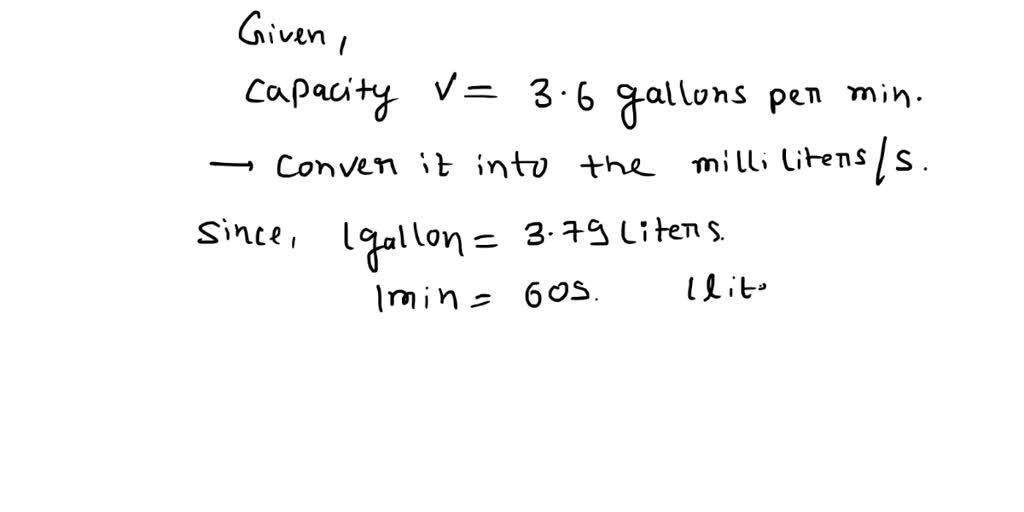 Given,
Capacity V = 3.6 gallons per min.
→ Conver it into the milliliters/s.
Since, 1gallon = 3.79 Liters.
1min = 60s. 1lit.